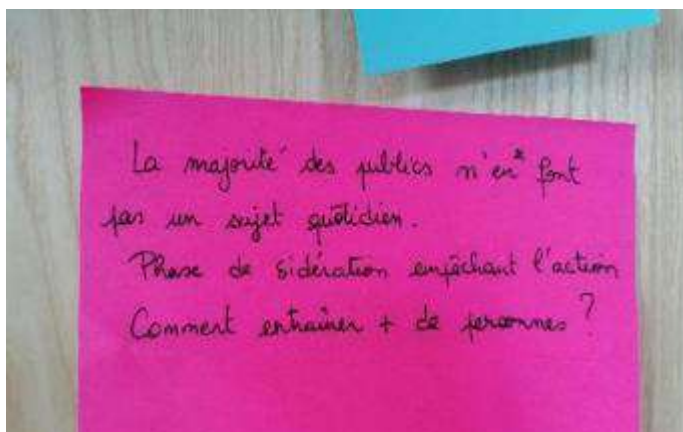 La majorité des publics n'en* font
pas un sujet quotidien.
Phase de sidération empêchant l'action
Comment entraîner + de personnes ?